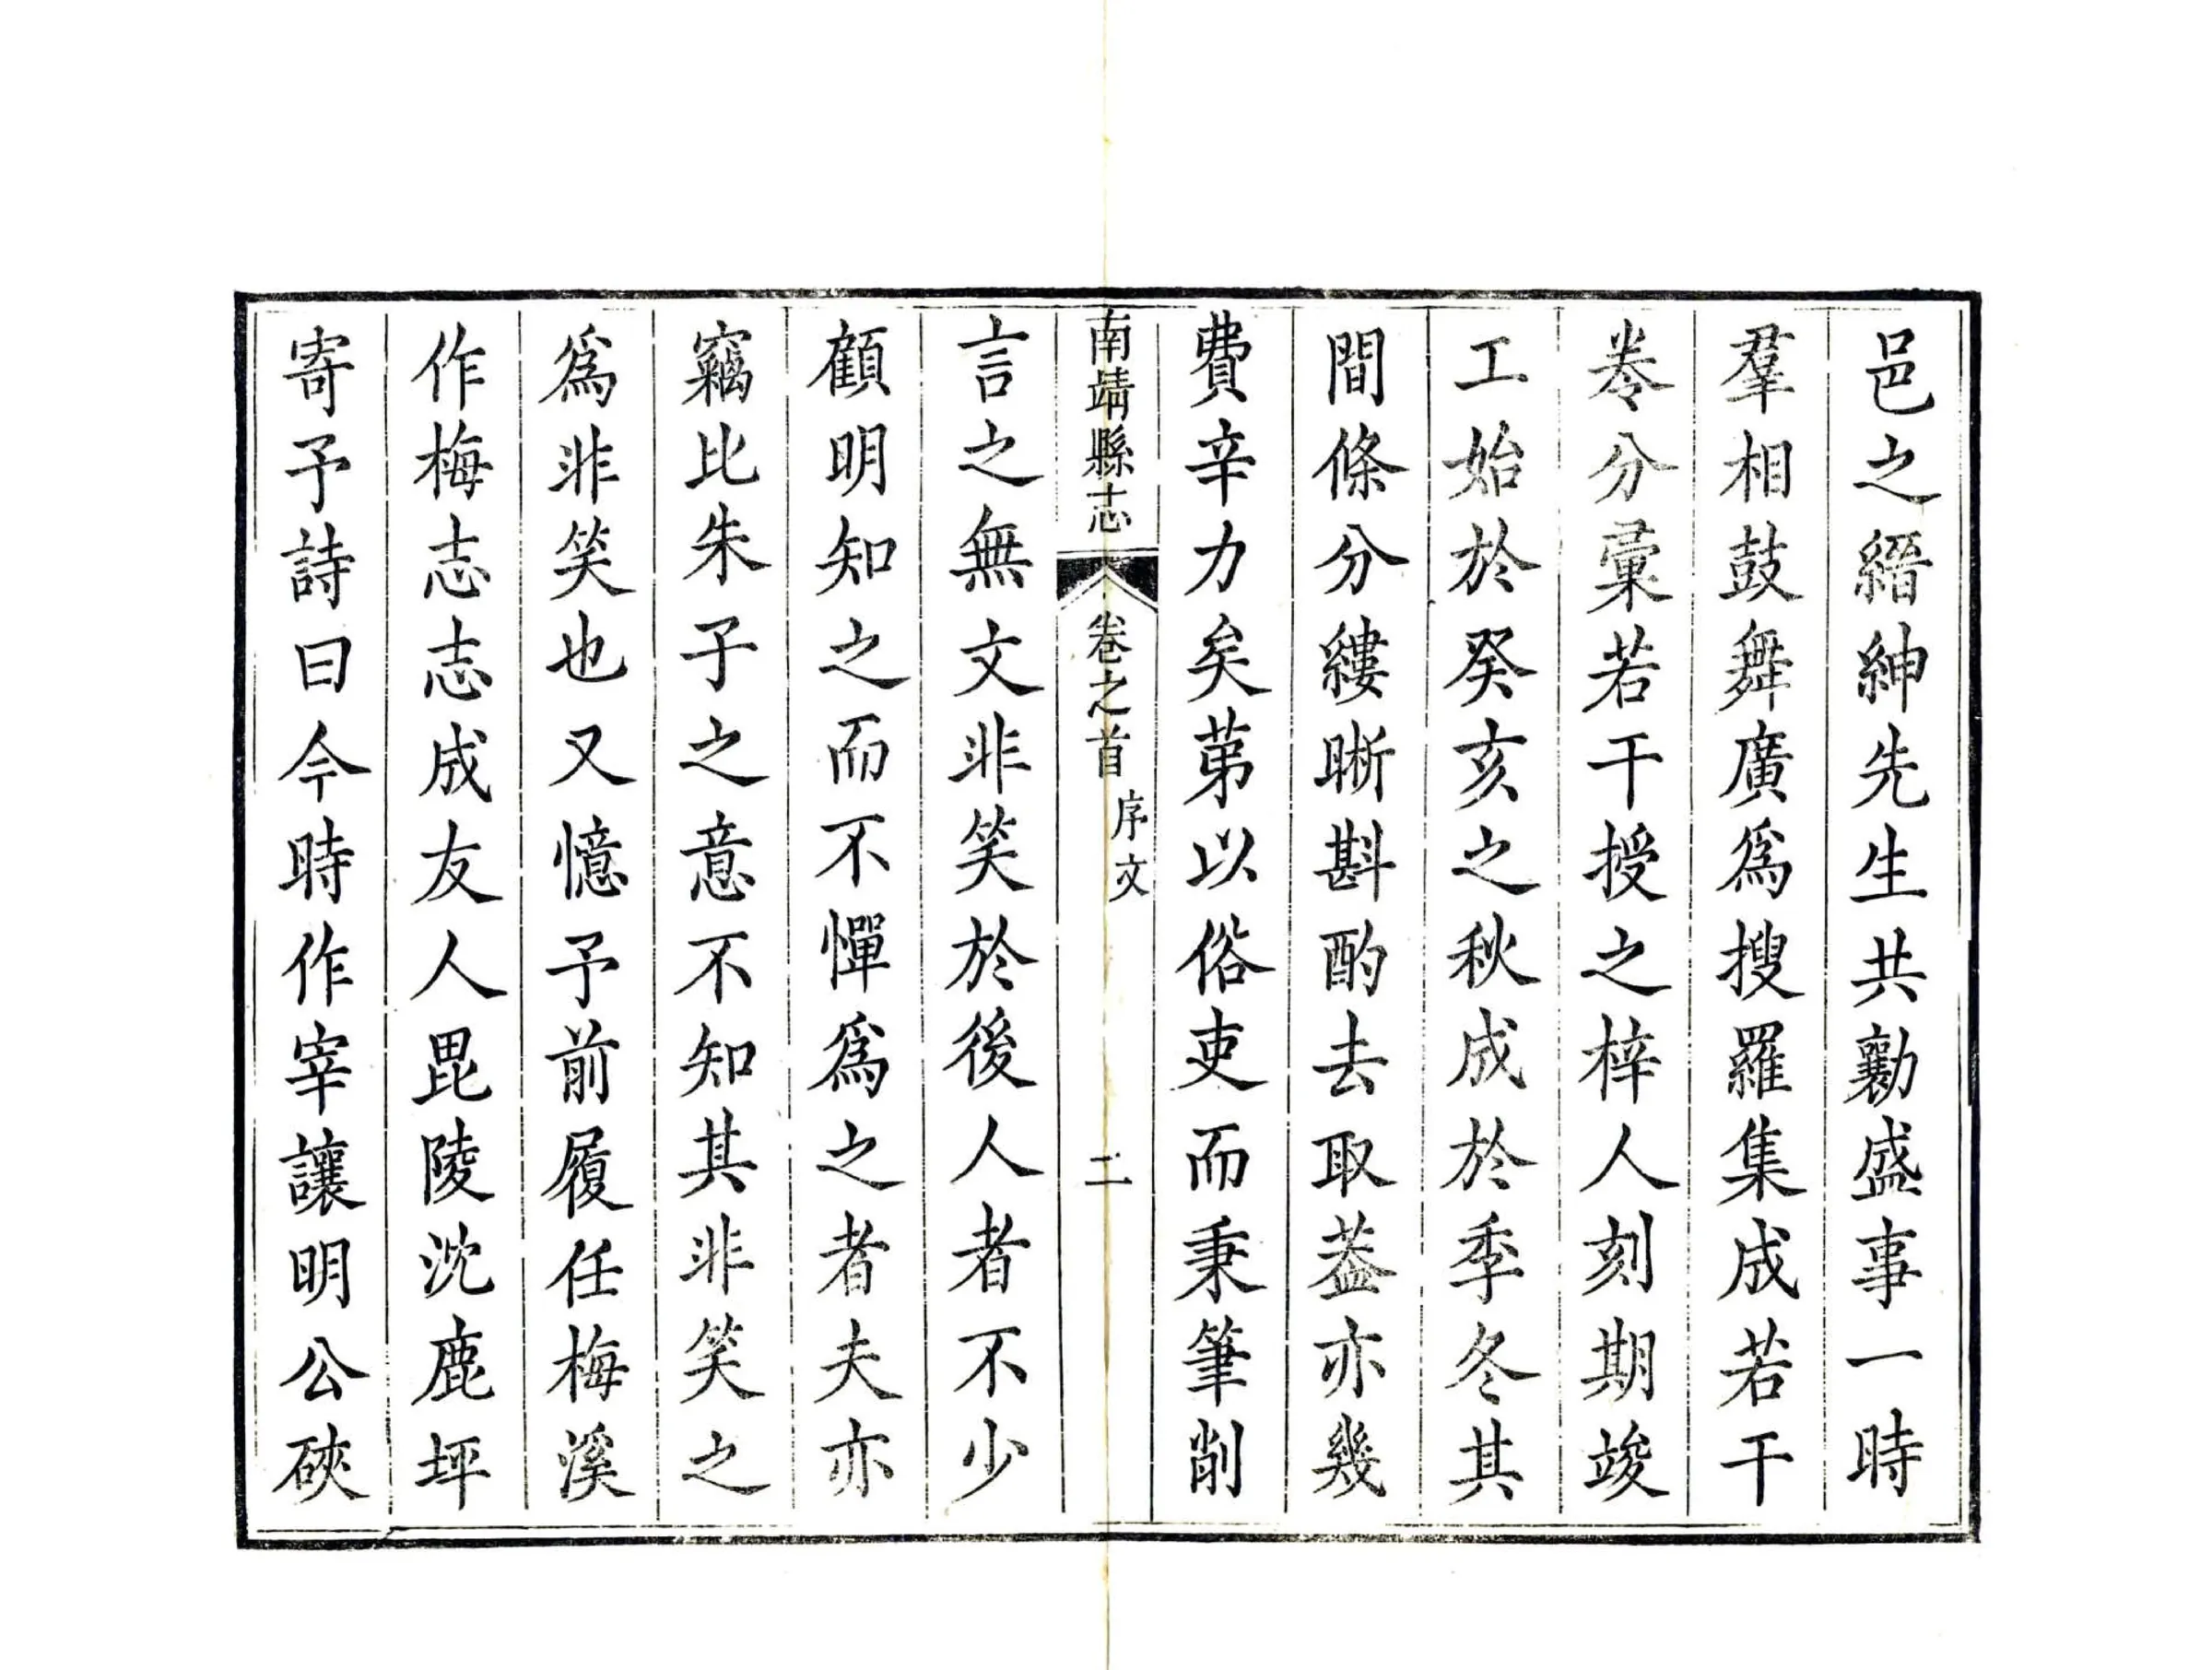 邑之縉紳先生共勷盛事一時
羣相鼓舞廣爲搜羅集成若干
卷分彙若干授之梓人刻期竣
工始於癸亥之秋成於季冬其
間條分縷晰斟酌去取葢亦幾
費辛力矣苐以俗吏而秉筆削
南靖縣志
卷之首
序文
二
言之無文非笑於後人者不少
顧明知之而不憚爲之者夫亦
竊比朱子之意不知其非笑之
爲非笑也又憶予前履任梅溪
作梅志志成友人毘陵沈鹿坪
寄予詩曰今時作宰讓明公硤